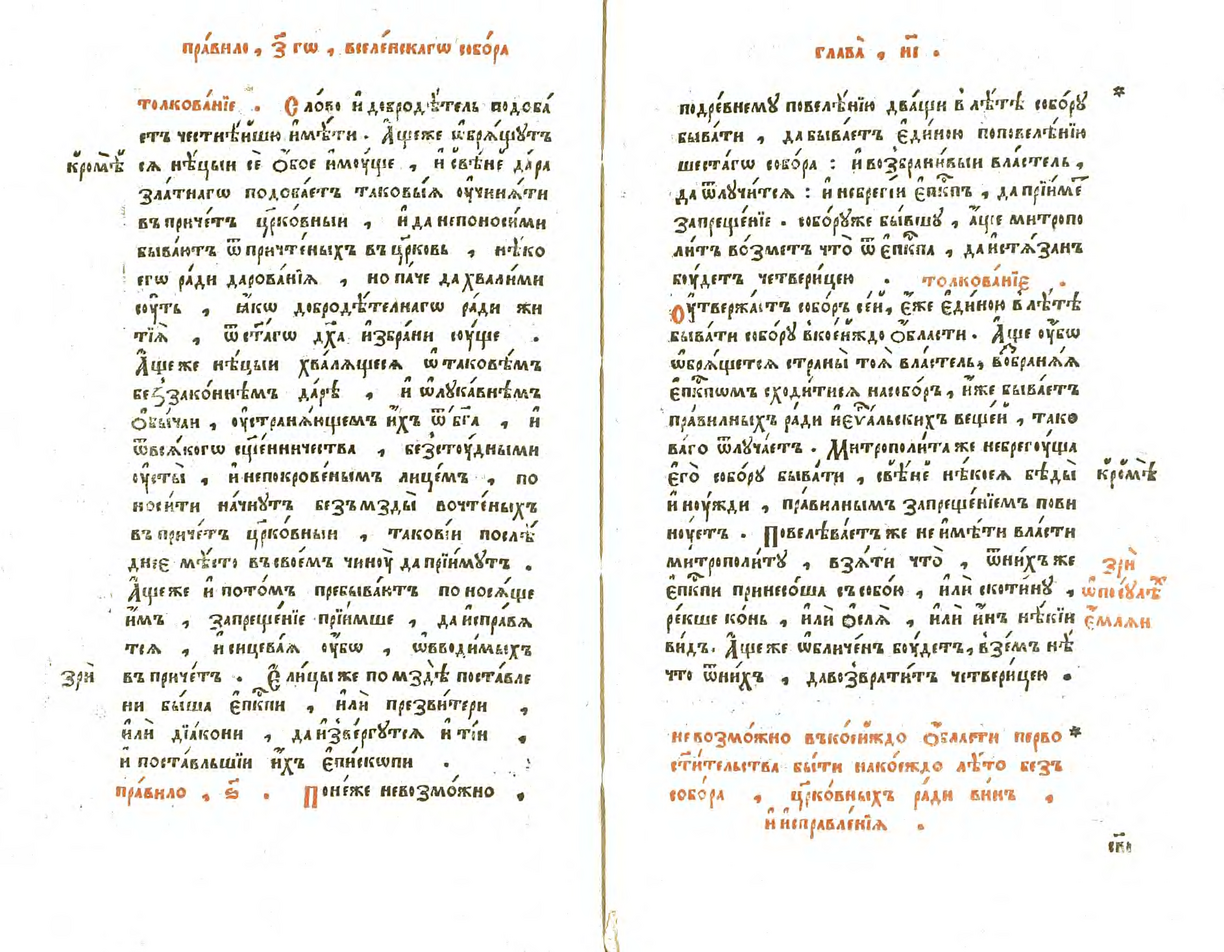 пра́вило , з҃ гѡ , вселе́нскагѡ собо́ра
толкова́нїе . Сло́во и҆ добродѣ́тель подоба́
етъ честнѣ́йшю и҆мѣ́ти . А҆́щеже ѡ҆брѧ́щутъ
кромѣ̀
сѧ нѣ́цыи сѐ ѻ҆бое и҆мѹще , и҆ свѣ́не да́ра
зла́тнагѡ подоба́етъ таковы́ѧ ѹ҆чинѧ́ти
въ приче́тъ цр҃ко́вныи , и҆ да непоноси́ми
быва́ютъ ѿ причте́ныхъ въ цр҃ковь , нѣ́ко
егѡ ра́ди дарова́нїѧ , но па́че да хвали́ми
сѹ́ть , ꙗ҆́кѡ добродѣ́телнагѡ ра́ди жи
тїѧ̀ , ѿ ст҃а́гѡ дх҃а и҆збра́ни сѹ́ще .
А҆́ще же нѣ́цыи хвалѧ́щесѧ ѡ҆ тако́вѣмъ
беззако́ннѣмъ да́рѣ , и҆ ѡ҆ лука́внѣмъ
ѻ҆бы́чаи , ѹ҆странѧ́ющемъ и҆́хъ ѿ бг҃а , и҆
ѿ всѧ́когѡ сщ҃е́нничества , безстѹ́дными
ѹ҆сты̀ , и҆ непокрове́нымъ лице́мъ , по
носи́ти на́чнутъ безъ мзды̀ вочте́ныхъ
въ приче́тъ цр҃ко́вныи , такові́и послѣ́
днее мѣ́сто въ свое́мъ чинѹ̀ да прїи́мутъ .
А҆́ще же и҆ пото́мъ пребыва́ютъ понося́ще
и҆́мъ , запреще́нїе прїи́мше , да и҆спра́вѧ
тсѧ , и҆ сицева́ѧ ѹ҆́бѡ , ѡ҆ вводи́мыхъ
зрѝ
въ приче́тъ . Е҆ли́цы же по мздѣ̀ поста́вле
ни бы́ша є҆пⷭ҇кпи , и҆лѝ презви́тери ,
и҆лѝ дїа́кони , да и҆зве́ргутсѧ и҆ ті́и ,
и҆ поста́вльшїи и҆́хъ є҆пи́скопи .
пра́вило , ѕ҃ . Поне́же невозмо́жно ,
глава̀ , н҃і .
по дре́внему повелѣ́нїю два́щи в лѣ́тѣ собо́ру
быва́ти , да быва́етъ є҆ди́ною по повелѣ́нїю
шеста́гѡ собо́ра : и҆ возбрани́выи вла́стель ,
да ѿлучи́тсѧ : и҆ небрегі́и є҆пⷭ҇кпъ , да прїи́ме
запреще́нїе . собо́ру же бы́вшу , а҆́ще митропо
ли́тъ во́зметъ что̀ ѿ є҆пⷭ҇кпа , да и҆стѧ́занъ
бѹ́детъ четвери́цею . толкова́нїе .
Ѹ҆твержа́етъ собо́ръ се́и , є҆́же є҆ди́ною в лѣ́тѣ
быва́ти собо́ру в кое́йждо ѻ҆́бласти . А҆́ще ѹ҆́бѡ
ѡ҆брѧ́щетсѧ страны̀ тоѧ̀ вла́стель, вобранѧ́ѧ
є҆пⷭ҇кпѡмъ сходи́тисѧ на собо́ръ , и҆́же быва́етъ
пра́вилныхъ ра́ди и҆ єѵⷢ҇а́льскихъ веще́и , тако
ва́го ѿлуча́етъ . Митрополи́та же небрегѹ́ща
є҆го̀ собо́ру быва́ти , свѣ́не нѣ́коеѧ бѣды̀
кромѣ̀
и҆ нѹ́жди , пра́вилнымъ запреще́нїемъ пови
нѹ́етъ . Повелѣва́етъ же не и҆мѣ́ти вла́сти
митрополи́ту , взѧ́ти что̀ , ѿ ни́хъ же
зрѝ
є҆пⷭ҇кпи принесо́ша съ собо́ю , и҆лѝ скоти́ну ,
ѡ҆ посу́лѣⷯ
ре́кше ко́нь , и҆лѝ ѻ҆слѧ̀ , и҆лѝ и҆́нъ нѣ́кїи
є҆млѧ́и
ви́дъ . А҆́ще же ѡ҆бличе́нъ бѹ́детъ, взе́мъ нѣ́
что ѿ ни́хъ , да возврати́тъ четвери́цею .
невозмо́жно въ кое́йждо ѻ҆́бласти перво
ст҃и́тельства бы́ти на ко́еждо лѣ́то безъ
собо́ра , цр҃ко́вныхъ ра́ди ви́нъ ,
и҆ и҆справле́нїѧ .